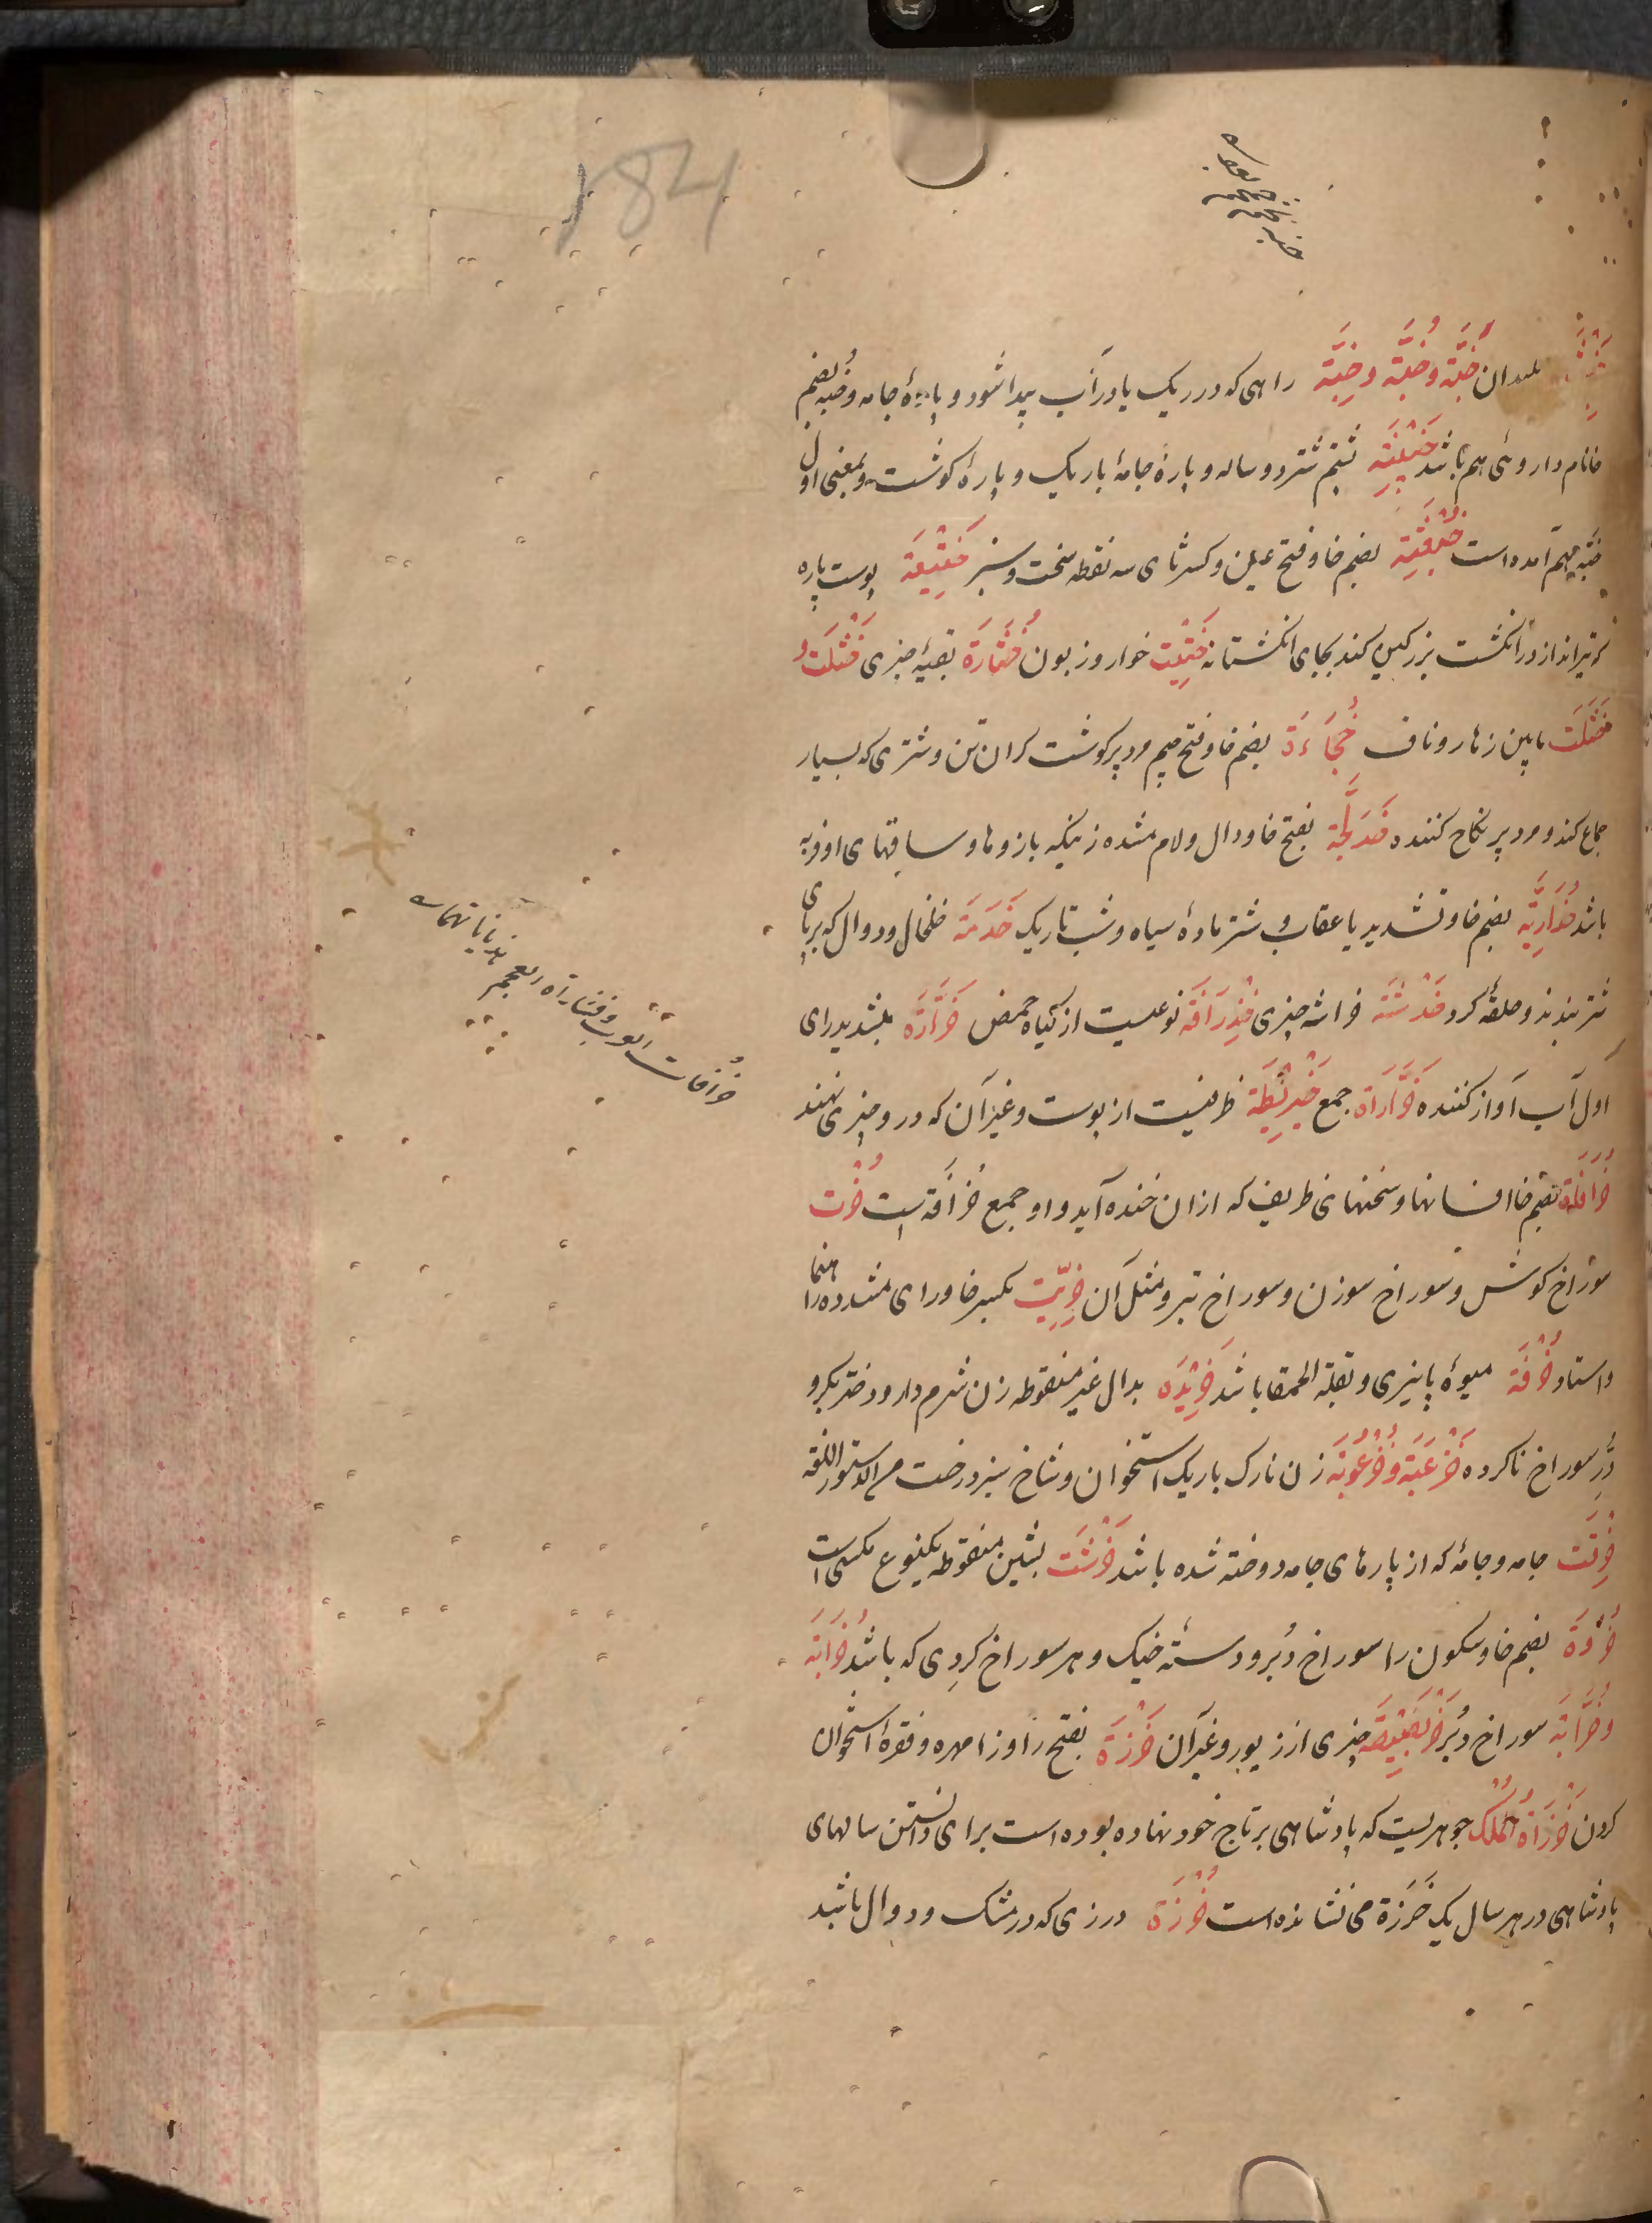 184
بلیدان خَبَّة وخُبَّة وخِبَّة راهی که در ریک یا در آب پیدا شود و پارهٔ جامه وخبه بضم
خا نام داروئی هم باشد خَبِیْبَة پشم شتر دوساله و پارهٔ جامهٔ باریک و پارهٔ کوشت وبمعنی اول
خبّه هم آمده است بضم خا و فتح عین و کسر ثای سه نقطه سخت و سبز خَتِیْعَة پوست پاره
که تیر انداز در انکشت بزرکین کند بجای انکشتانه خَتِیْت خوار وزبون خُثَارَة بقیهٔ چیزی خَثْلَت و
خَثَلَت مابین زهار وناف خُجَاءَة بضم خا وفتح جیم مرد پر کوشت کران تن و شتری که بسیار
جماع کند و مرد پر نکاح کننده خَدَلَّجَة بفتح خا ودال و لام مشده زنیکه بازوها وساقهای او فربه
باشد خُدَارِیَّة بضم خا وتشدید یا عقاب و شتر مادهٔ سیاه و شب تاریک خَدَمَة خلخال ودوال که بر پای
شتر بندند و حلقهٔ کرد خَدْشَة خراشه چیزی خِذْرَافَة نوعیست از کیاه حمض خَرَّارَه بتشدید رای
اول آب آواز کننده خَرَّارَاة جمع خَرِیْطَة ظرفیست از پوست وغیر آن که در و چیزی نهند
بضم خا افسانها وسخنهای ظریف که ازان خنده آید و او جمع خرافة است خُرْت
سوراخ کوش و سوراخ سوزن و سوراخ تبر و مثل آن خِرِّیْت بکسر خا ورای مشدده راهنما
واستاد خُرْفَة میوهٔ پاییزی وبقلة الحمقا باشد خَرِیْدَه بدال غیر منقوطه زن شرم دار و دختر بکر و
دُرّ سوراخ ناکرده خَرْعَبَة وخُرْعُوْبَة زن نازک باریک استخوان و شاخ سبز درخت من دستور اللغة
جامه و جامهٔ که از پارهای جامه دوخته شده باشد خَرْشَت بشین منقوطه یکنوع مکسی است
بضم خا وسکون را سوراخ دُبر و دستهٔ خیک و هر سوراخ کردی که باشد خُرَابَة
وخُرَّابَة سوراخ دُبر خَرْبَصِیْصَة چیزی از زیور وغیر آن خَرَزَة بفتح را وزا مهره وفقرهٔ استخوان
کردن خَرَزَاةُ الْمُلْک جوهریست که پادشاهی بر تاج خود نهاده بوده است برای دانستن سالهای
پادشاهی در هر سال یک خَرَزَة می نشانده است خُرْزَة درزی که در مشک و دوال باشد
خرافات العرب